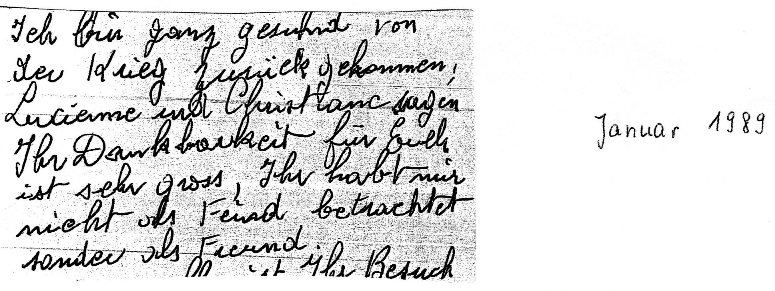 Ich bin ganz gesund von
der Krieg zurück gekommen,
Lucienne und Christiane sagen
Ihr Dankbarkeit für Euch
ist sehr gross, Ihr habt mir
nicht als Feind betrachtet
sonder als Freund.
ist Ihr Besuch
Januar 1989